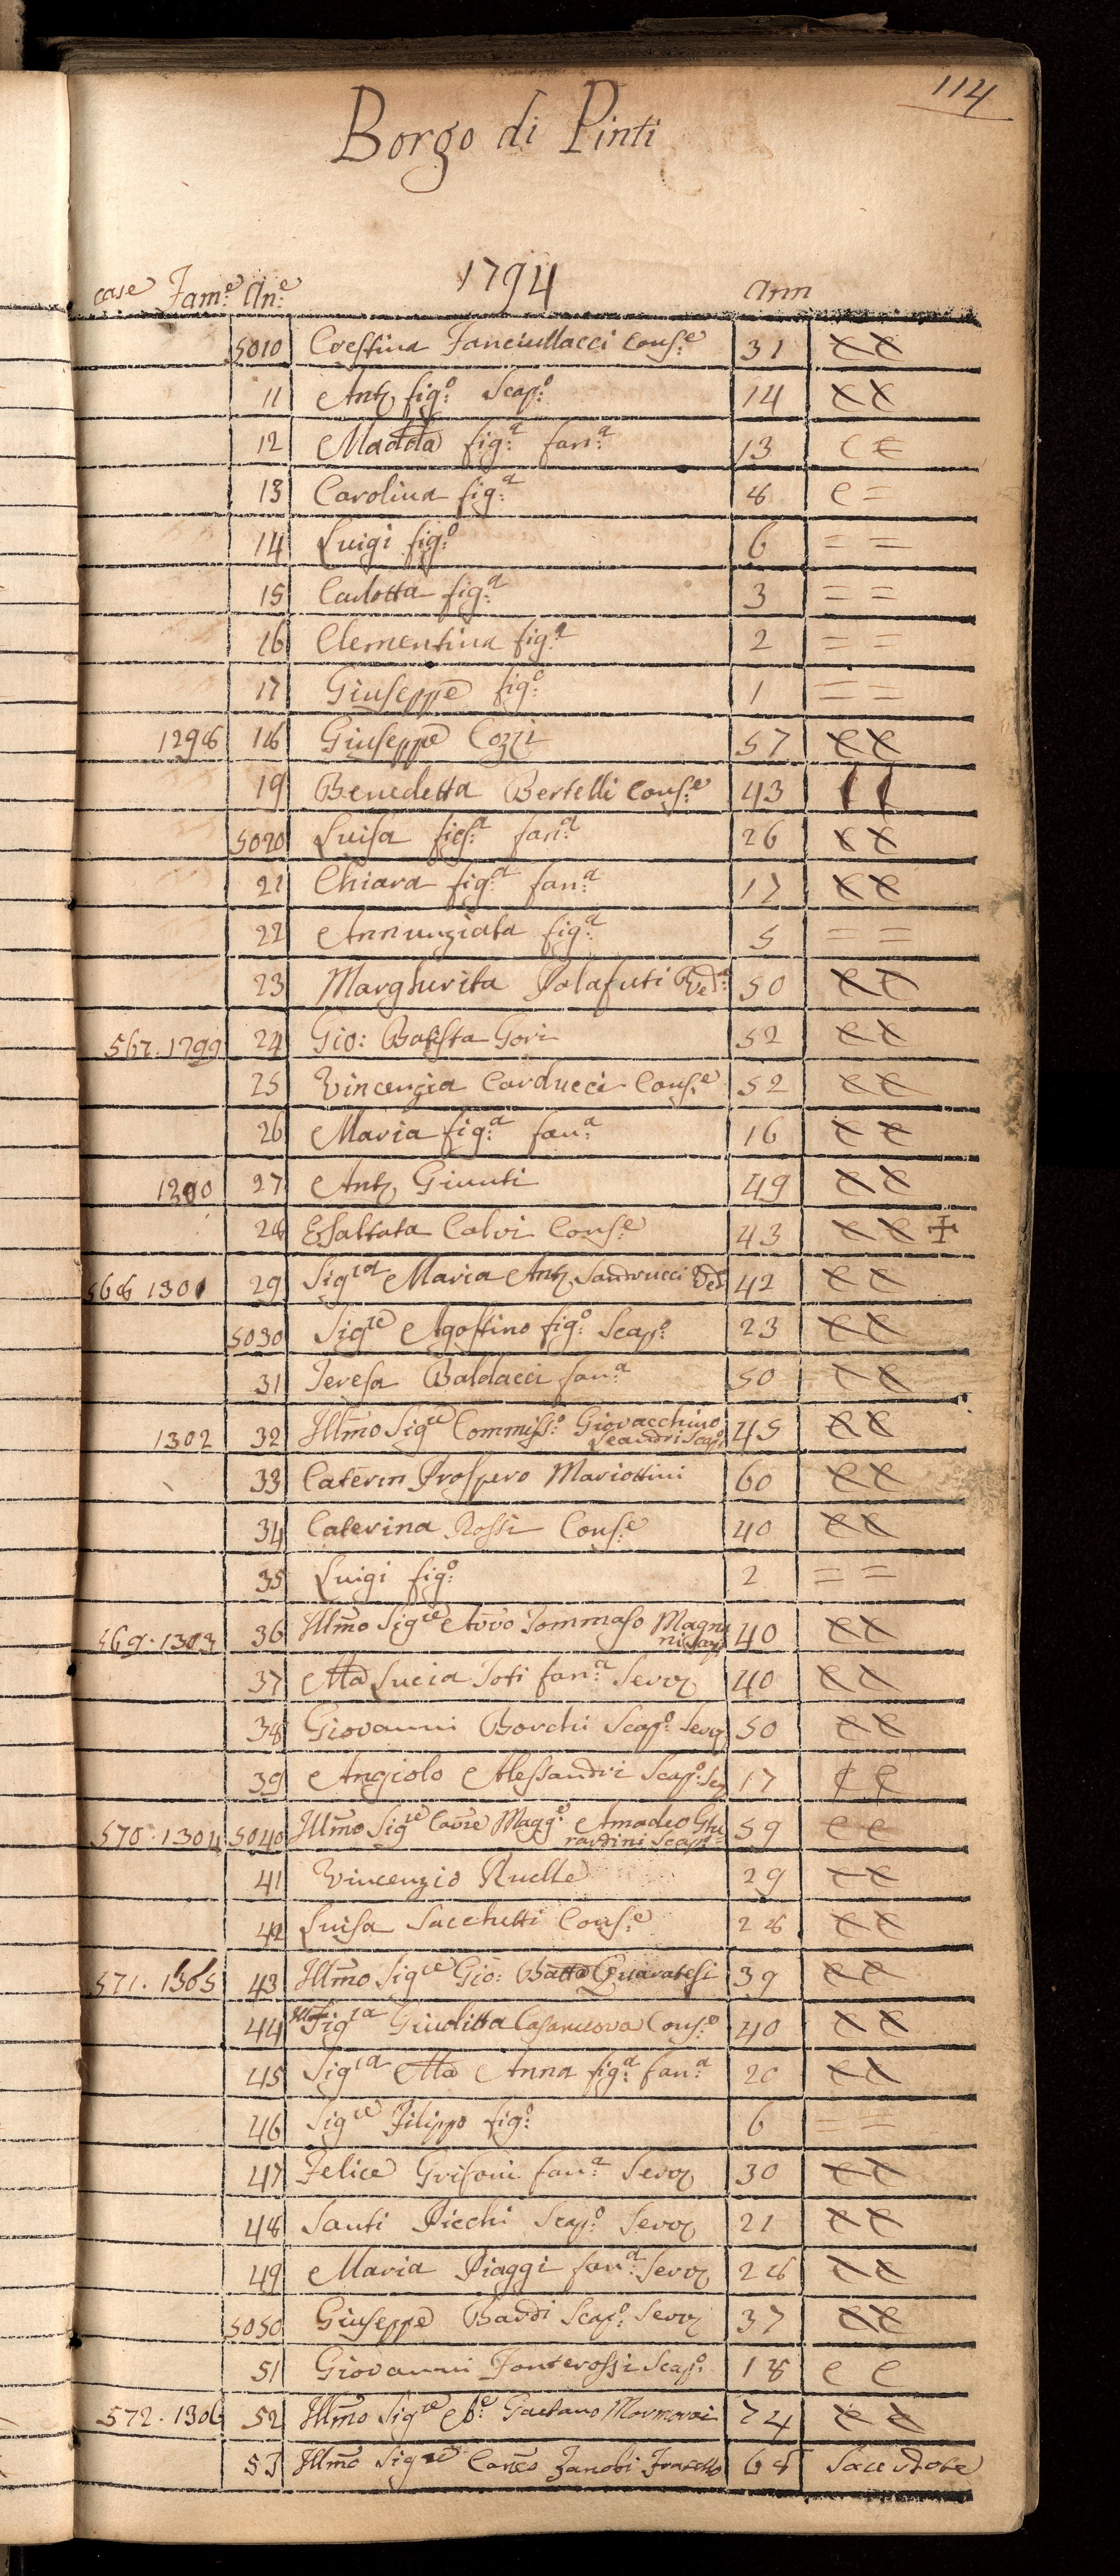 114
Borgo di Pinti
1794
case Fam:e An:e Ann
5010 Crestina Fanciullacci Cons:e 31
11 Ant. fig:o Scap:o 14
12 Madda fig:a fan:a 13
13 Carolina fig:a 8 C =
14 Luigi fig:o 6 = =
15 Carlotta fig:a 3 = =
16 Clementina fig:a 2 = =
17 Giuseppe fig:o 1 = =
1298 18 Giuseppe Cozzi 57
19 Benedetta Bertelli Cons:e 43
5020 Luisa fig:a fan:a 26
21 Chiara fig:a fan:a 17
22 Annunziata fig:a 5 = =
23 Margherita Ved:a 50
567. 1799 24 Gio: Batista Gori 52
25 Vincenzia Carducci Cons:e 52
26 Maria fig:a fan:a 16
27 Ant. Giunti 49
28 Esaltata Calvi Cons:e 43 ✝
568 1301 29 Sig:ra Maria Ant. Sandrucci Ved:a 42
5030 Sig:re Agostino fig:o Scap:o 23
31 Teresa Baldacci fan:a 50
1302 32 Illmo Sig:re Commiss:o Giovacchino
Leandri Scap:o 45
33 Caterin Prospero Mariottini 60
34 Caterina Rossi Cons:e 40
35 Luigi fig:o 2 = =
569. 1303 36 Illmo Sig:re Avvo Tommaso Magni
ni Scap 40
37 Ma Lucia Toti fan:a Serv 40
38 Giovanni Borchi Scap:o Serv 50
39 Angiolo Alessandri Scap:o Ser 17
570. 1304 5040 Illmo Sig:re Cavre Magg:e Amadeo Ghe
rardini Scap:o 59 C C
41 Vincenzio Ruelle 29
42 Luisa Sacchetti Cons:e 28
571. 1305 43 Illmo Sig:re Gio: Batta Quaratesi 39
44 Illma Sig:ra Giuditta Casanuova Cons:e 40
45 Sig:ra Ma Anna fig:a fan:a 20
46 Sig:re Filippo fig:o 6 = =
47 Felice Grifoni fan:a Serv 30
48 Santi Picchi Scap:o Serv 21
49 Maria Piaggi fan:a Serv 28
5050 Giuseppe Bandi Scap:o Serv 37
51 Giovanni Fonterossi Scap:o 18 C C
572. 1306 52 Illmo Sig:re Ab:e Gaetano Marmorai 74
53 Illmo Sig:re Canco Zanobi Fratello 68 Sacerdote